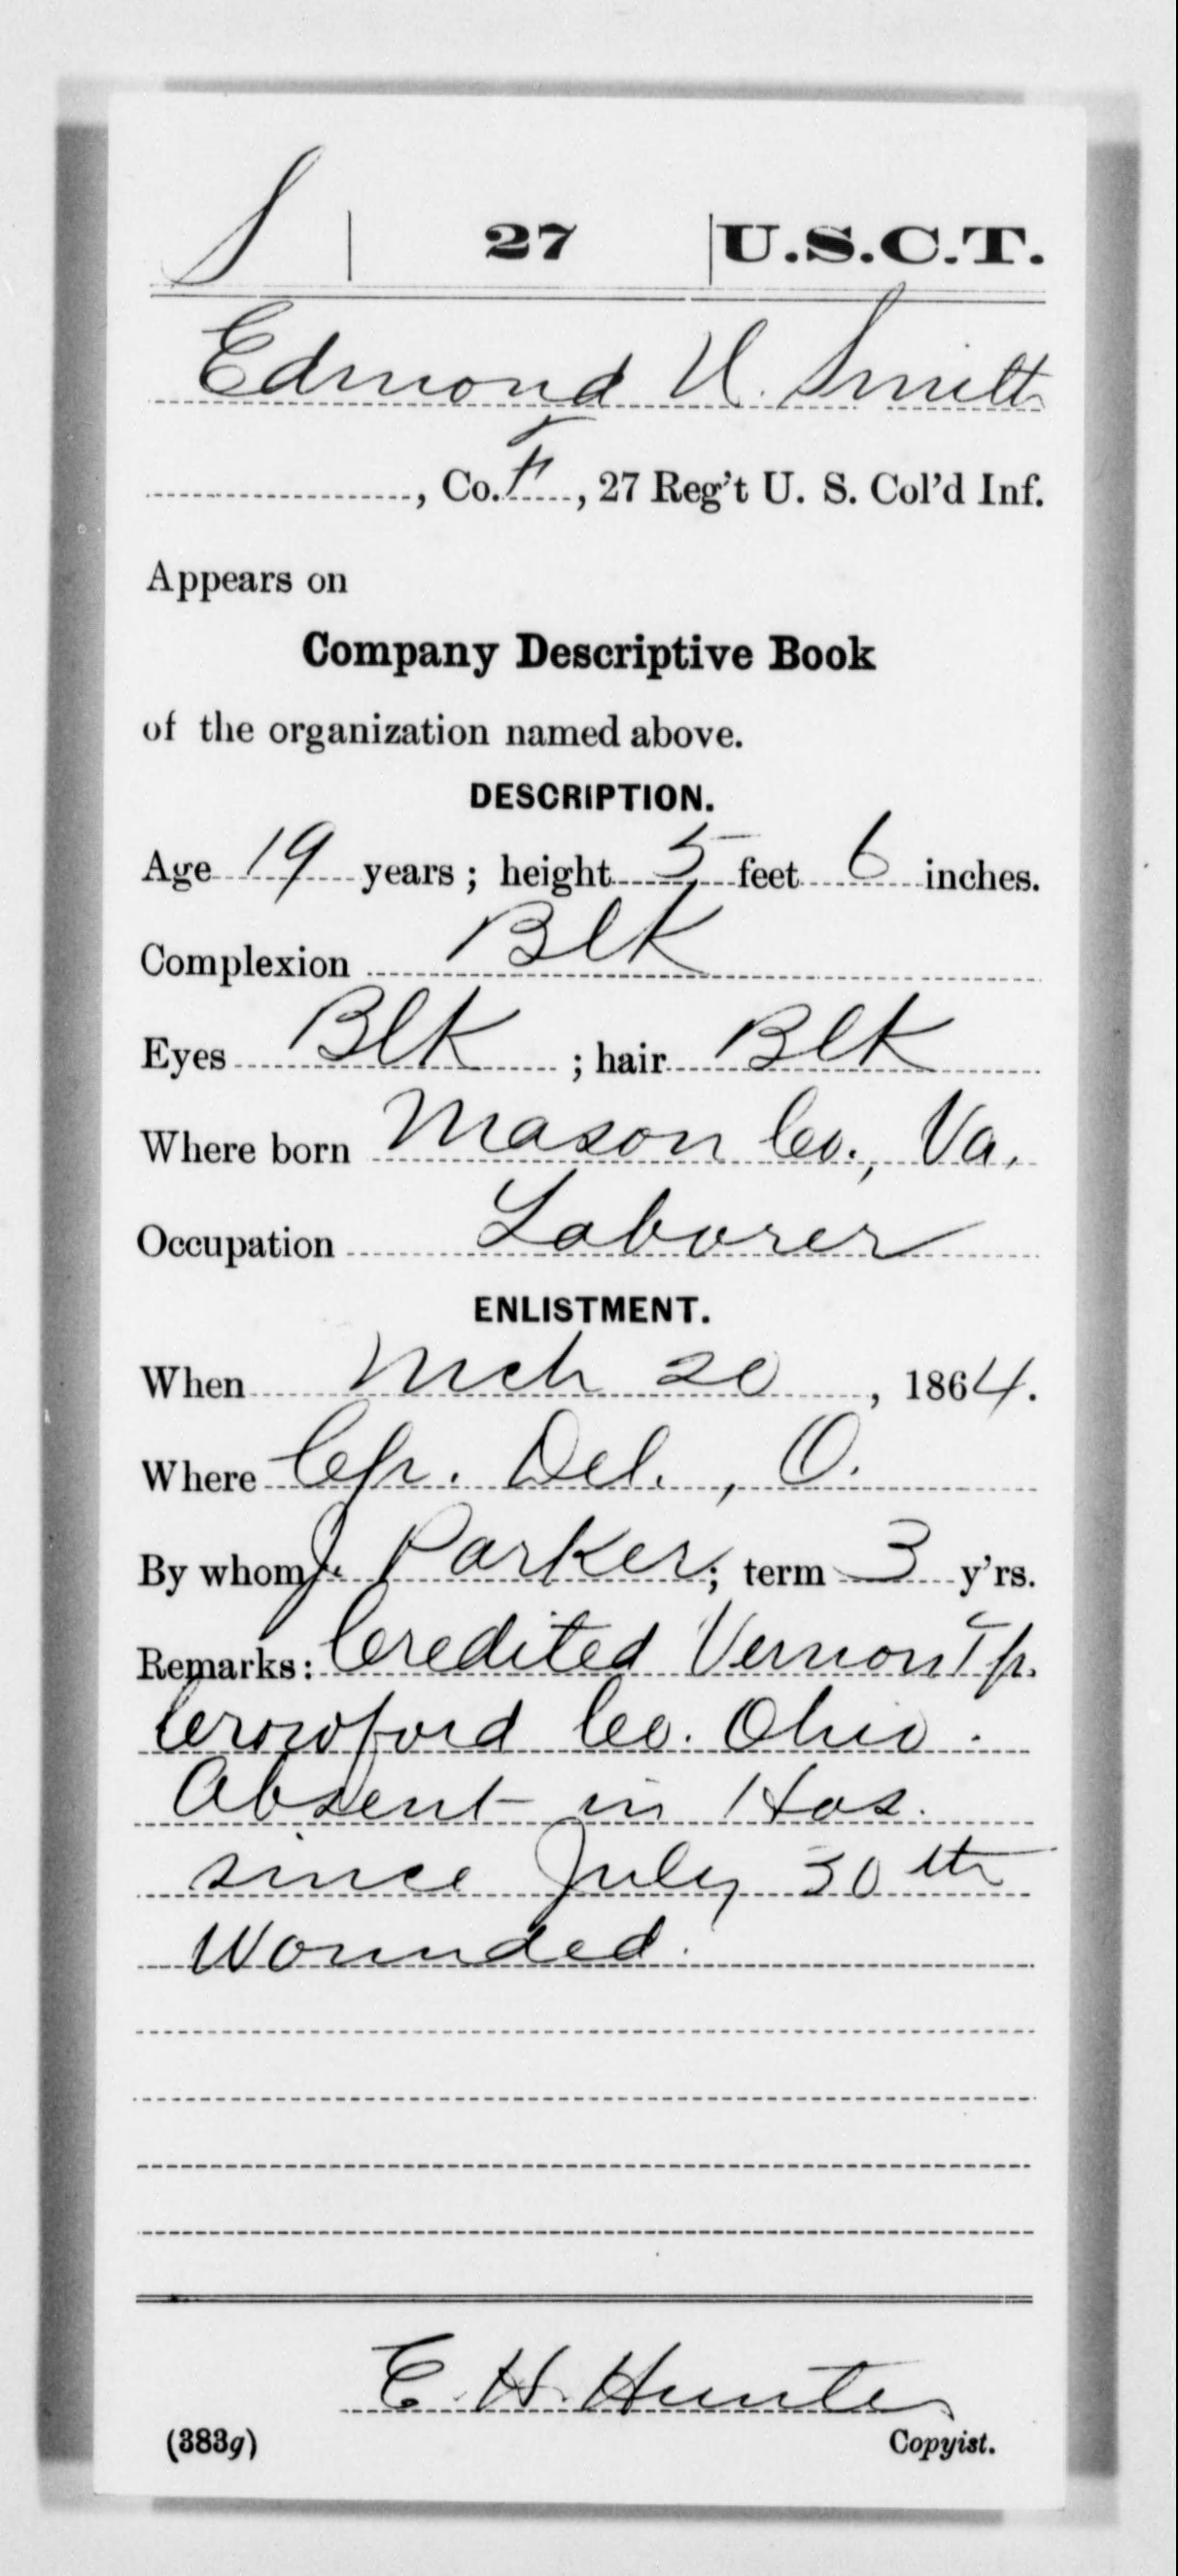 S | 27 | U.S.C.T.
Edmond U. Smith
, Co. F, 27 Reg't U. S. Col'd Inf.
Appears on
Company Descriptive Book
of the organization named above.
DESCRIPTION.
Age 19 years; height 5 feet 6 inches.
Complexion Blk
Eyes Blk; hair Blk
Where born Mason Co., Va.
Occupation Laborer
ENLISTMENT.
When Mch 20, 1864.
Where Cp. Del., O.
By whom J. Parker; term 3 y'rs.
Remarks: Credited Vernon Tp.
Crowford Co. Ohio.
Absent in Hos.
since July 30th
Wounded.
E. H. Hunter
(383g) Copyist.